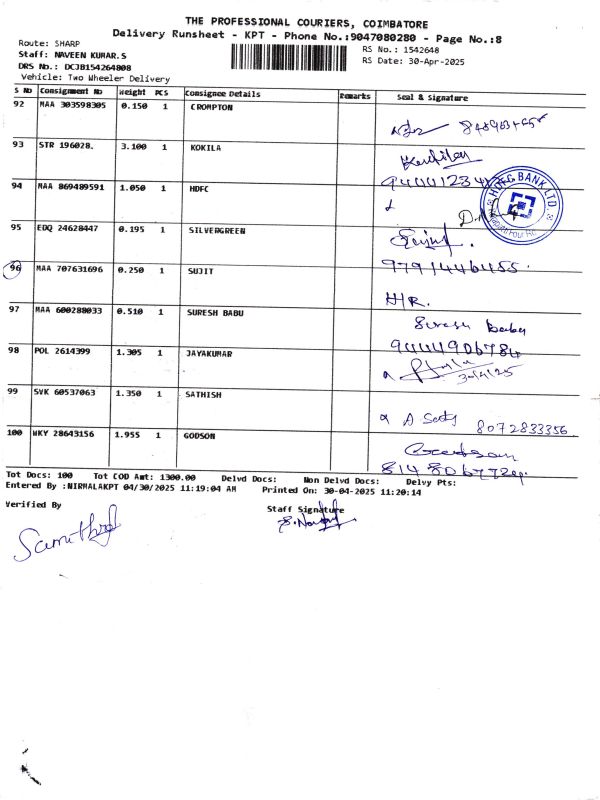 THE PROFESSIONAL COURIERS, COIMBATORE
Delivery Runsheet - KPT - Phone No.:9047080280 - Page No.:8
Route: SHARP
Staff: NAVEEN KUMAR.S
DRS No.: DCJB154264808
Vehicle: Two Wheeler Delivery
RS No.: 1542648
RS Date: 30-Apr-2025
S No Consignment No Weight PCS Consignee Details Remarks Seal & Signature
92 MAA 303598305 0.150 1 CROMPTON
93 STR 196028. 3.100 1 KOKILA
94 MAA 869489591 1.050 1 HDFC
HDFC BANK LTD.
95 EDQ 24628447 0.195 1 SILVERGREEN
96 MAA 707631696 0.250 1 SUJIT
H/R.
97 MAA 600288033 0.510 1 SURESH BABU Suresh Babu
9444906784
98 POL 2614399 1.305 1 JAYAKUMAR
30/4/25
99 SVK 60537063 1.350 1 SATHISH
8072833356
100 WKY 28643156 1.955 1 GODSON
Tot Docs: 100 Tot COD Amt: 1300.00 Delvd Docs: Non Delvd Docs: Delvy Pts:
Entered By :NIRMALAKPT 04/30/2025 11:19:04 AM Printed On: 30-04-2025 11:20:14
Verified By
Staff Signature